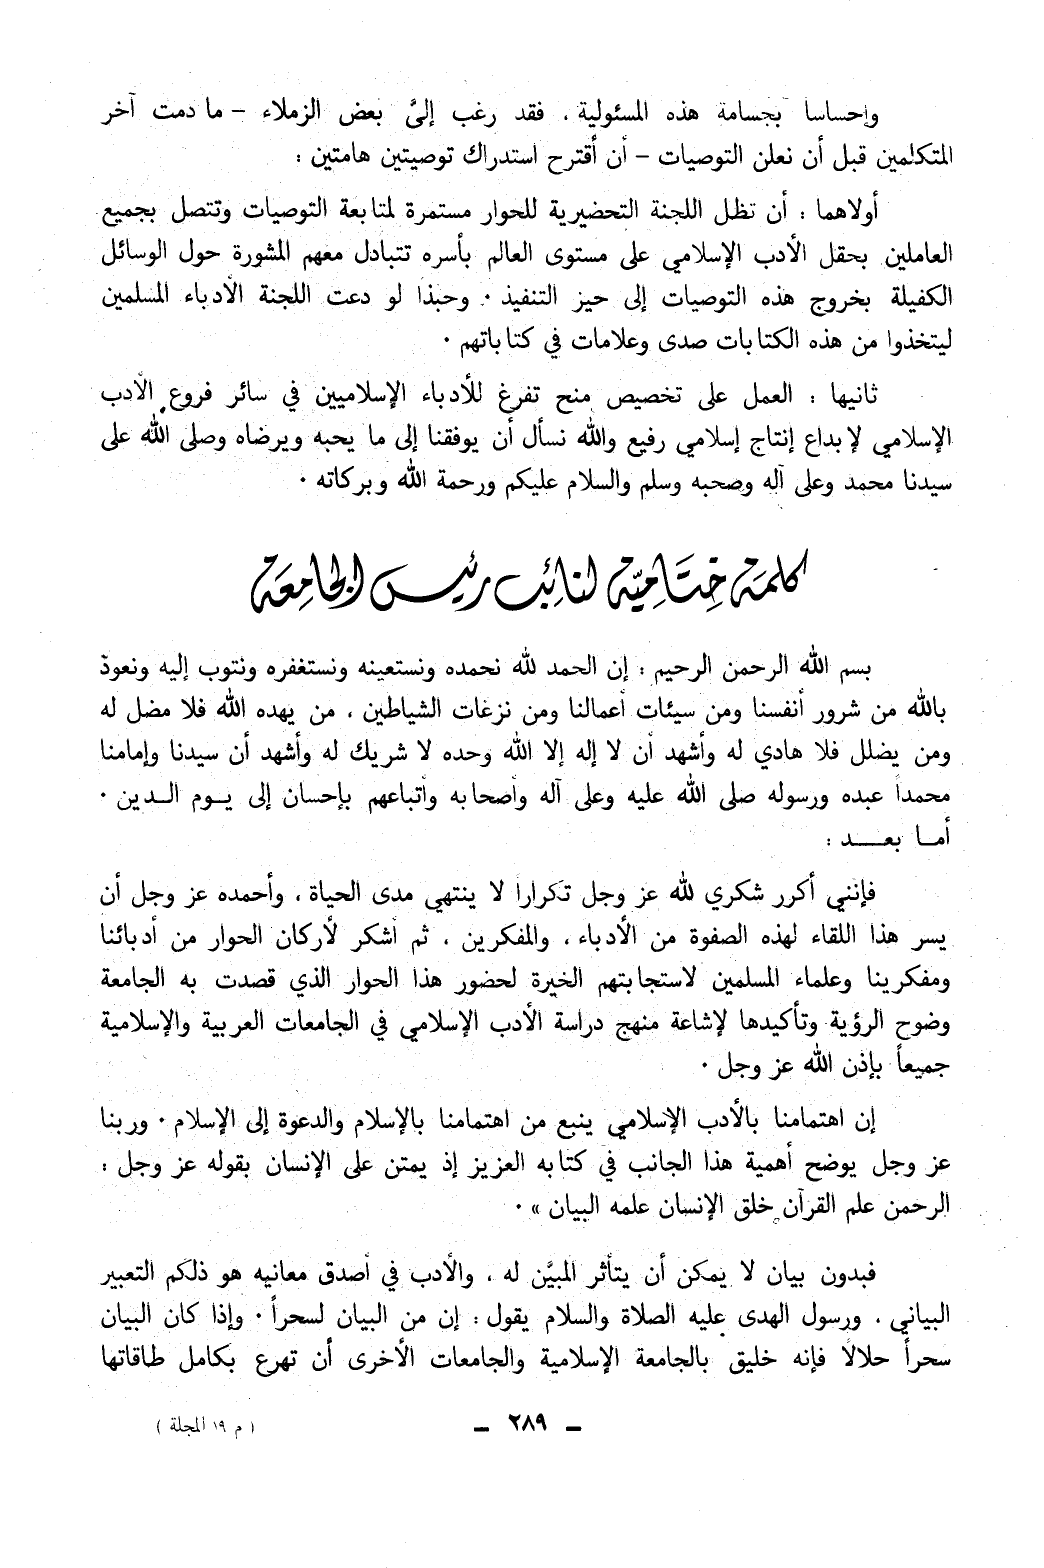 وإحساسا بجسامة هذه المسئولية ، فقد رغب إليَّ بعض الزملاء – ما دمت آخر
المتكلمين قبل أن نعلن التوصيات – أن أقترح استدراك توصيتين هامتين :
أولاهما : أن تظل اللجنة التحضيرية للحوار مستمرة لمتابعة التوصيات وتتصل بجميع
العاملين بحقل الأدب الإسلامي على مستوى العالم بأسره تتبادل معهم المشورة حول الوسائل
الكفيلة بخروج هذه التوصيات إلى حيز التنفيذ . وحبذا لو دعت اللجنة الأدباء المسلمين
ليتخذوا من هذه الكتابات صدى وعلامات في كتاباتهم .
ثانيها : العمل على تخصيص منح تفرغ للأدباء الإسلاميين في سائر فروع الأدب
الإسلامي لإبداع إنتاج إسلامي رفيع والله نسأل أن يوفقنا إلى ما يحبه ويرضاه وصلى الله على
سيدنا محمد وعلى آله وصحبه وسلم والسلام عليكم ورحمة الله وبركاته .
كلمة ختامية لنائب رئيس الجامعة
بسم الله الرحمن الرحيم : إن الحمد لله نحمده ونستعينه ونستغفره ونتوب إليه ونعوذ
بالله من شرور أنفسنا ومن سيئات أعمالنا ومن نزغات الشياطين ، من يهده الله فلا مضل له
ومن يضلل فلا هادي له وأشهد أن لا إله إلا الله وحده لا شريك له وأشهد أن سيدنا وإمامنا
محمداً عبده ورسوله صلى الله عليه وعلى آله وأصحابه وأتباعهم بإحسان إلى يـوم الـدين .
أمـا بعـــد :
فإنني أكرر شكري لله عز وجل تكراراً لا ينتهي مدى الحياة ، وأحمده عز وجل أن
يسر هذا اللقاء لهذه الصفوة من الأدباء ، والمفكرين ، ثم أشكر لأركان الحوار من أدبائنا
ومفكرينا وعلماء المسلمين لاستجابتهم الخيرة لحضور هذا الحوار الذي قصدت به الجامعة
وضوح الرؤية وتأكيدها لإشاعة منهج دراسة الأدب الإسلامي في الجامعات العربية والإسلامية
جميعاً بإذن الله عز وجل .
إن اهتمامنا بالأدب الإسلامي ينبع من اهتمامنا بالإسلام والدعوة إلى الإسلام . وربنا
عز وجل يوضح أهمية هذا الجانب في كتابه العزيز إذ يمتن على الإنسان بقوله عز وجل :
الرحمن علم القرآن خلق الإنسان علمه البيان » .
فبدون بيان لا يمكن أن يتأثر المبيَّن له ، والأدب في أصدق معانيه هو ذلكم التعبير
البياني ، ورسول الهدى عليه الصلاة والسلام يقول : إن من البيان لسحراً . وإذا كان البيان
سحراً حلالاً فإنه خليق بالجامعة الإسلامية والجامعات الأخرى أن تهرع بكامل طاقاتها
– ٢٨٩ –
( م ١٩ المجلة )